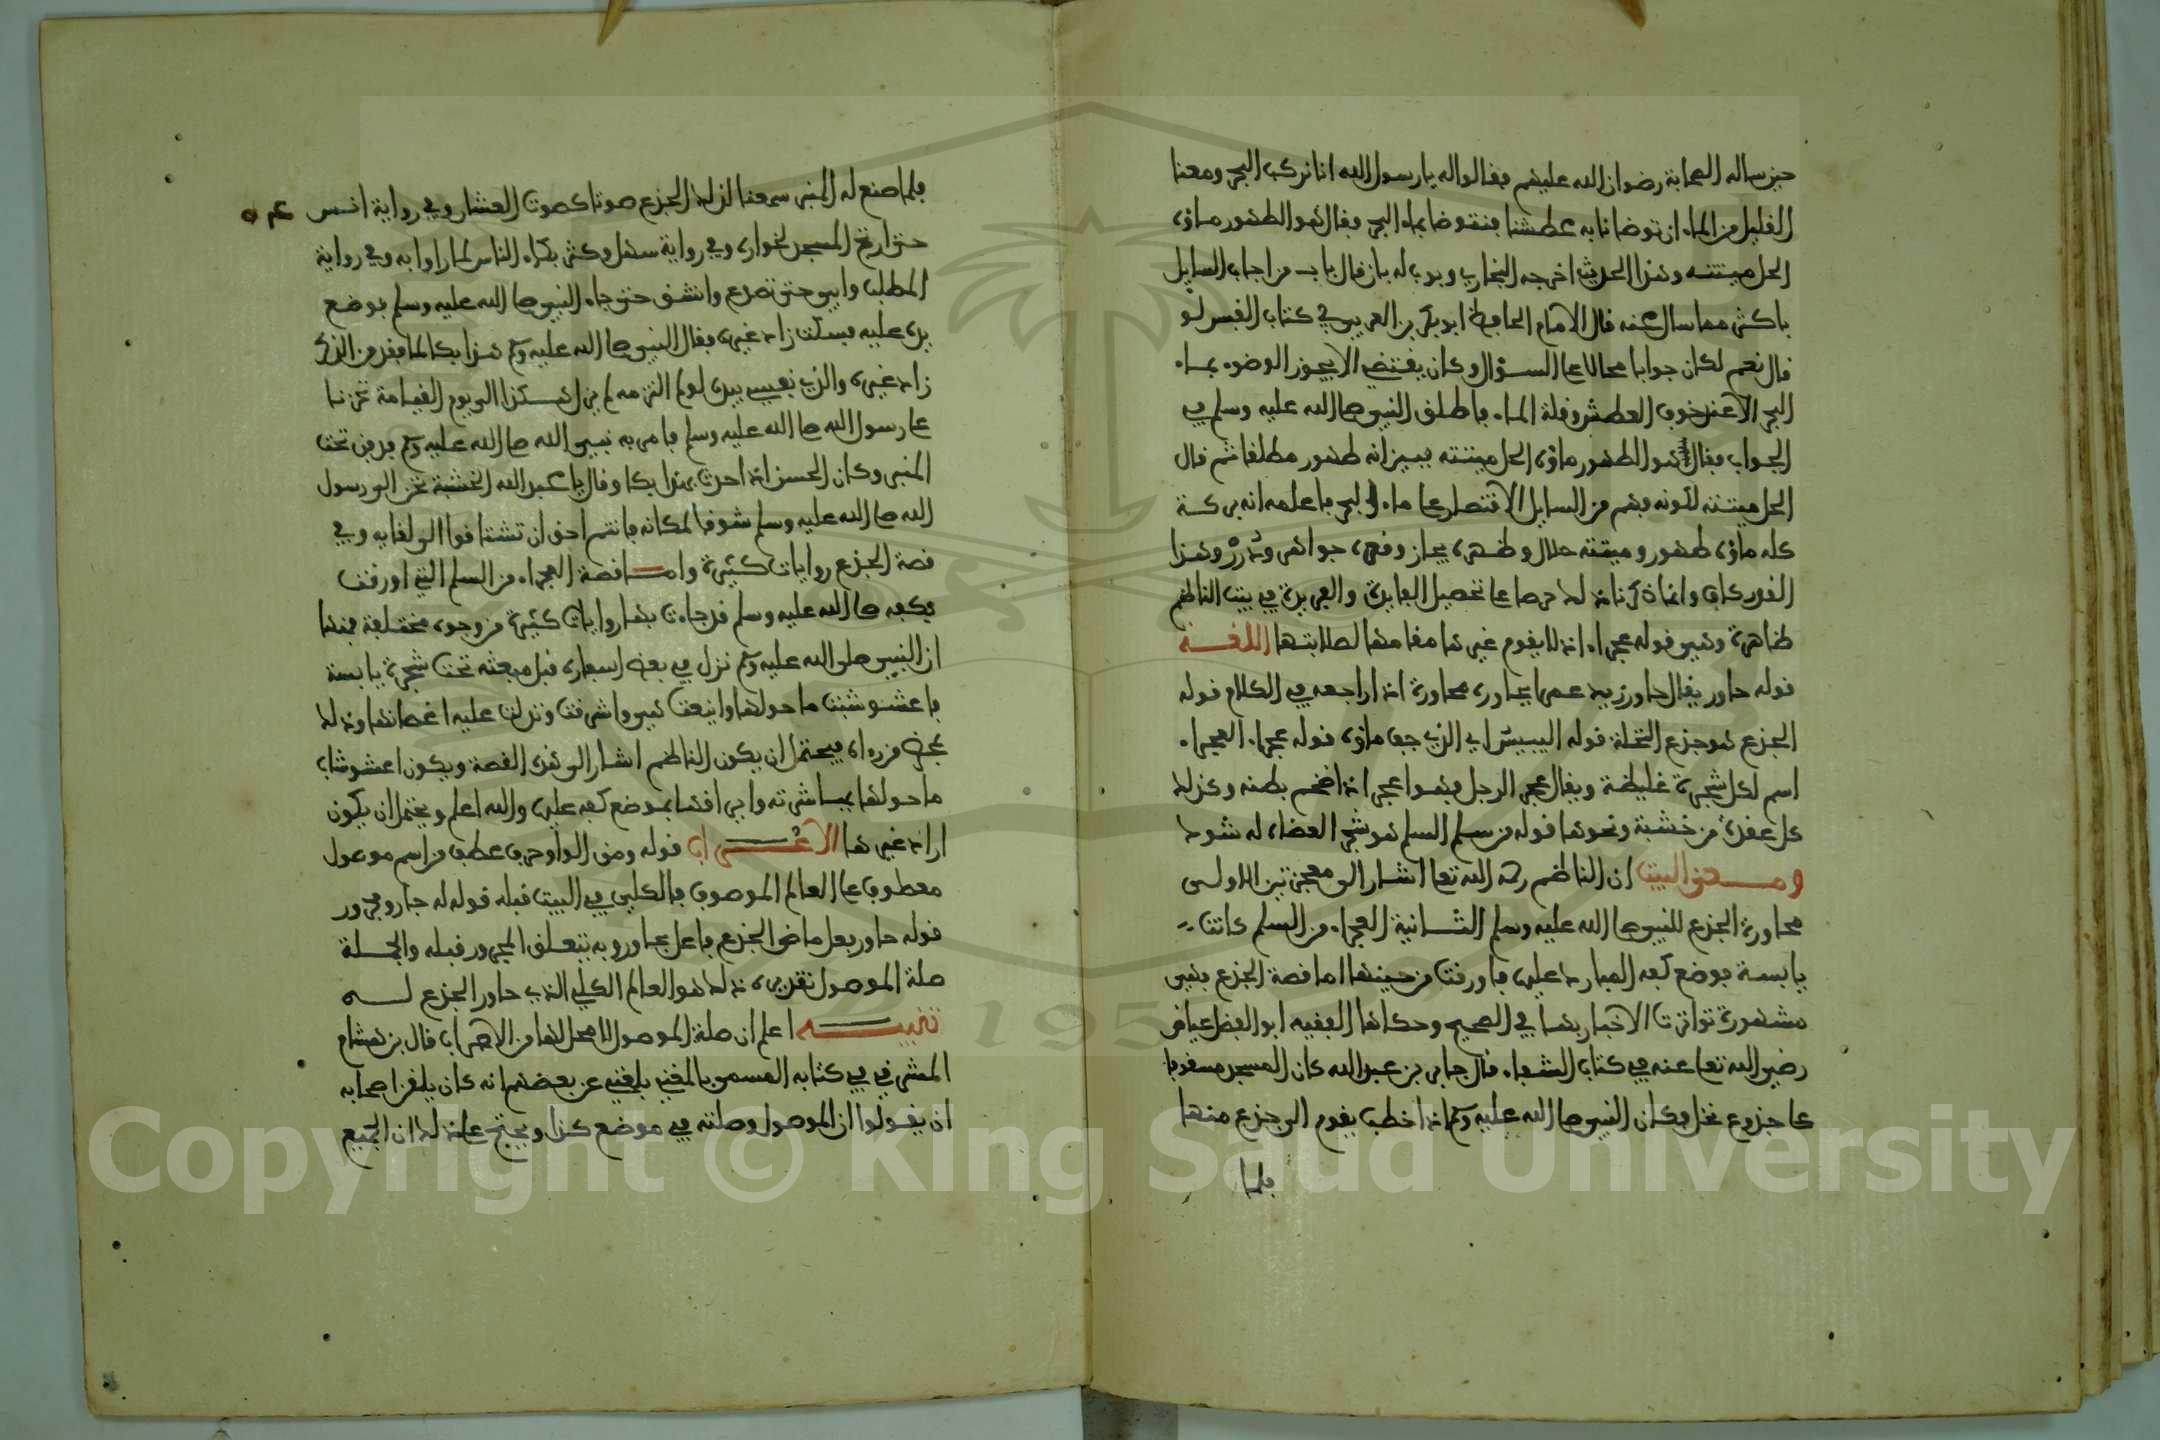 حين ساله الصحابة رضوان الله عليهم فقالوا له يا رسول الله انا نركب البحر ومعنا
القليل من الماء ان توضانا به عطشنا افنتوضا بماء البحر فقال هو الطهور ماؤه
الحل ميتته وهذا الحديث اخرجه البخاري وبوب له بان قال باب من اجاب السايل
باكثر مما سال عنه قال الامام الحافظ ابو بكر بن العربي في كتاب القبس لو
قال نعم لكان جوابا محالا على السؤال وكان يقتضي الا يجوز الوضوء بماء
البحر الا عند خوف العطش وقلة الماء فاطلق النبي صلى الله عليه وسلم في
الجواب فقال هو الطهور ماؤه الحل ميتته فبين انه طهور مطلقا ثم قال
الحل ميتته لكونه فهم من السايل الاقتصار على ماء البحر فاعلمه انه بركة
كله ماؤه طهور وميتته حلال وظهره مجاز وقعره جواهر ودرر وهذا
القدر كاف وانما ذكرنا ذلك حرصا على تحصيل الفايدة والفريدة في بيت الناظم
ظاهرة وهي قوله عجراء اذ لا يقوم غيرها مقامها لصلابتها اللغة
قوله حاور يقال حاور زيد عمرا يحاوره محاورة اذا راجعه في الكلام قوله
الجزع هو جزع النخلة قوله اليبيس اي الذي جف ماؤه قوله عجراء العجراء
اسم لكل شجرة غليظة ويقال عجر الرجل فهو اعجر اذا ضخم بطنه وكذلك
كل عقدة من خشبة ونحوها قوله من سلم السلم هو شجر العضاه له شوك
ومعنى البيت ان الناظم رحمه الله تعا اشار الى معجزتين الاولى
محاورة الجزع للنبي صلى الله عليه وسلم الثانية العجراء من السلم كانت
يابسة فوضع كفه المبارك عليها فاورقت من حينها اما قصة الجزع فهي
مشهورة تواترت الاخبار بها في الصحيح وحكاها الفقيه ابو الفضل عياض
رضي الله تعا عنه في كتاب الشفاء قال جابر بن عبد الله كان المسجد مسقوفا
على جزوع نخل وكان النبي صلى الله عليه وسلم اذا خطب يقوم الى جزع منها
فلما
فلما صنع له المنبر سمعنا لذلك الجزع صوتا كصوت العشار وفي رواية انس
حتى ارتج المسجد لخواره وفي رواية سهل وكثر بكاء الناس لما راوا به وفي رواية
المطلب وابي حتى تصدع وانشق حتى جاء النبي صلى الله عليه وسلم فوضع
يده عليه فسكت زاد غيره فقال النبي صلى الله عليه وسلم ان هذا بكا لما فقد من الذكر
زاد غيره والذي نفسي بيده لو لم التزمه لم يزل هكذا الى يوم القيامة تحزنا
على رسول الله صلى الله عليه وسلم فامر به نبي الله صلى الله عليه وسلم فدفن تحت
المنبر وكان الحسن اذا حدث بهذا بكا وقال يا عباد الله الخشبة تحن الى رسول
الله صلى الله عليه وسلم شوقا لمكانه فانتم احق ان تشتاقوا الى لقايه وفي
قصة الجزع روايات كثيرة واما قصة العجراء من السلم التي اورقت
بكفه صلى الله عليه وسلم فجاءت بها روايات كثيرة من وجوه مختلفة فمنها
ان النبي صلى الله عليه وسلم نزل في بعض اسفاره قبل مبعثه تحت شجرة يابسة
فاعشوشب ما حولها واينعت هي واشرقت وتدلت عليه اغصانها وذلك
بمحضر من رءاه فيحتمل ان يكون الناظم اشار الى هذه القصة ويكون اعشوشاب
ما حولها بمباشرته وايراقها بوضع كفه عليها والله اعلم ويحتمل ان يكون
اراد غيرها الاعراب قوله ومن الواو حرف عطف من اسم موصول
معطوف على العالم الموصوف بالكلي في البيت قبله قوله له جار ومجرور
قوله حاور فعل ماض الجزع فاعل بحاور وبه يتعلق المجرور قبله والجملة
صلة الموصول تقديره ذلك هو العالم الكلي الذي حاور الجزع له
تنبيه اعلم ان صلة الموصول لا محل لها من الاعراب قال بن هشام
المشرفي في كتابه المسمى بالمغني بلغني عن بعضهم انه كان يلقن اصحابه
ان يقولوا ان الموصول وصلته في موضع كذا ويحتج على ذلك ان الجميع
Copyright © King Saud University
195